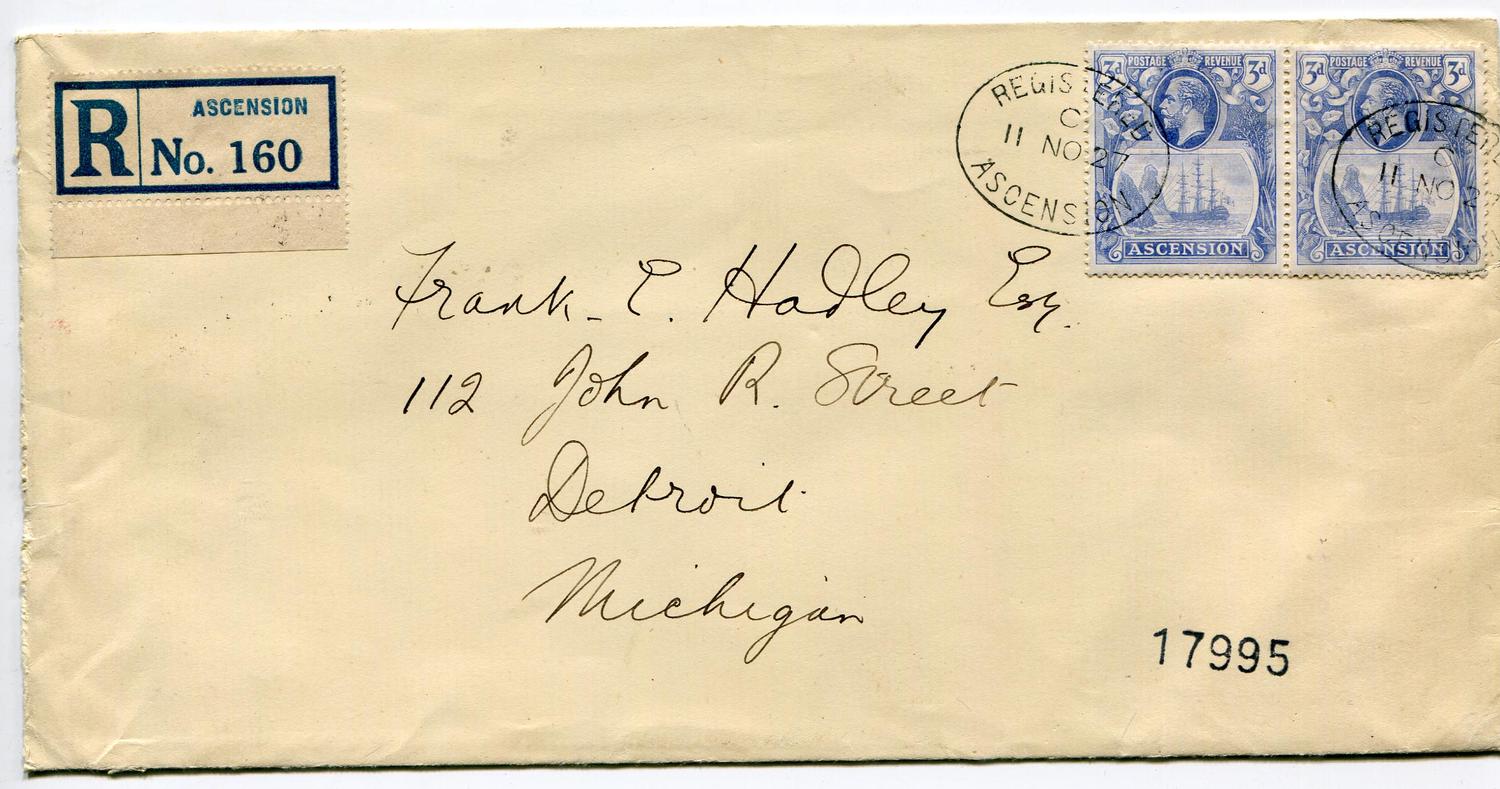 R ASCENSION
No. 160
REGISTERED
C
11 NO 27
ASCENSION
3d POSTAGE REVENUE 3d
ASCENSION
3d POSTAGE REVENUE 3d
ASCENSION
REGISTERE
C
11 NO 27
ASCENSION
Frank E. Hadley Esq.
112 John R. Street
Detroit
Michigan
17995